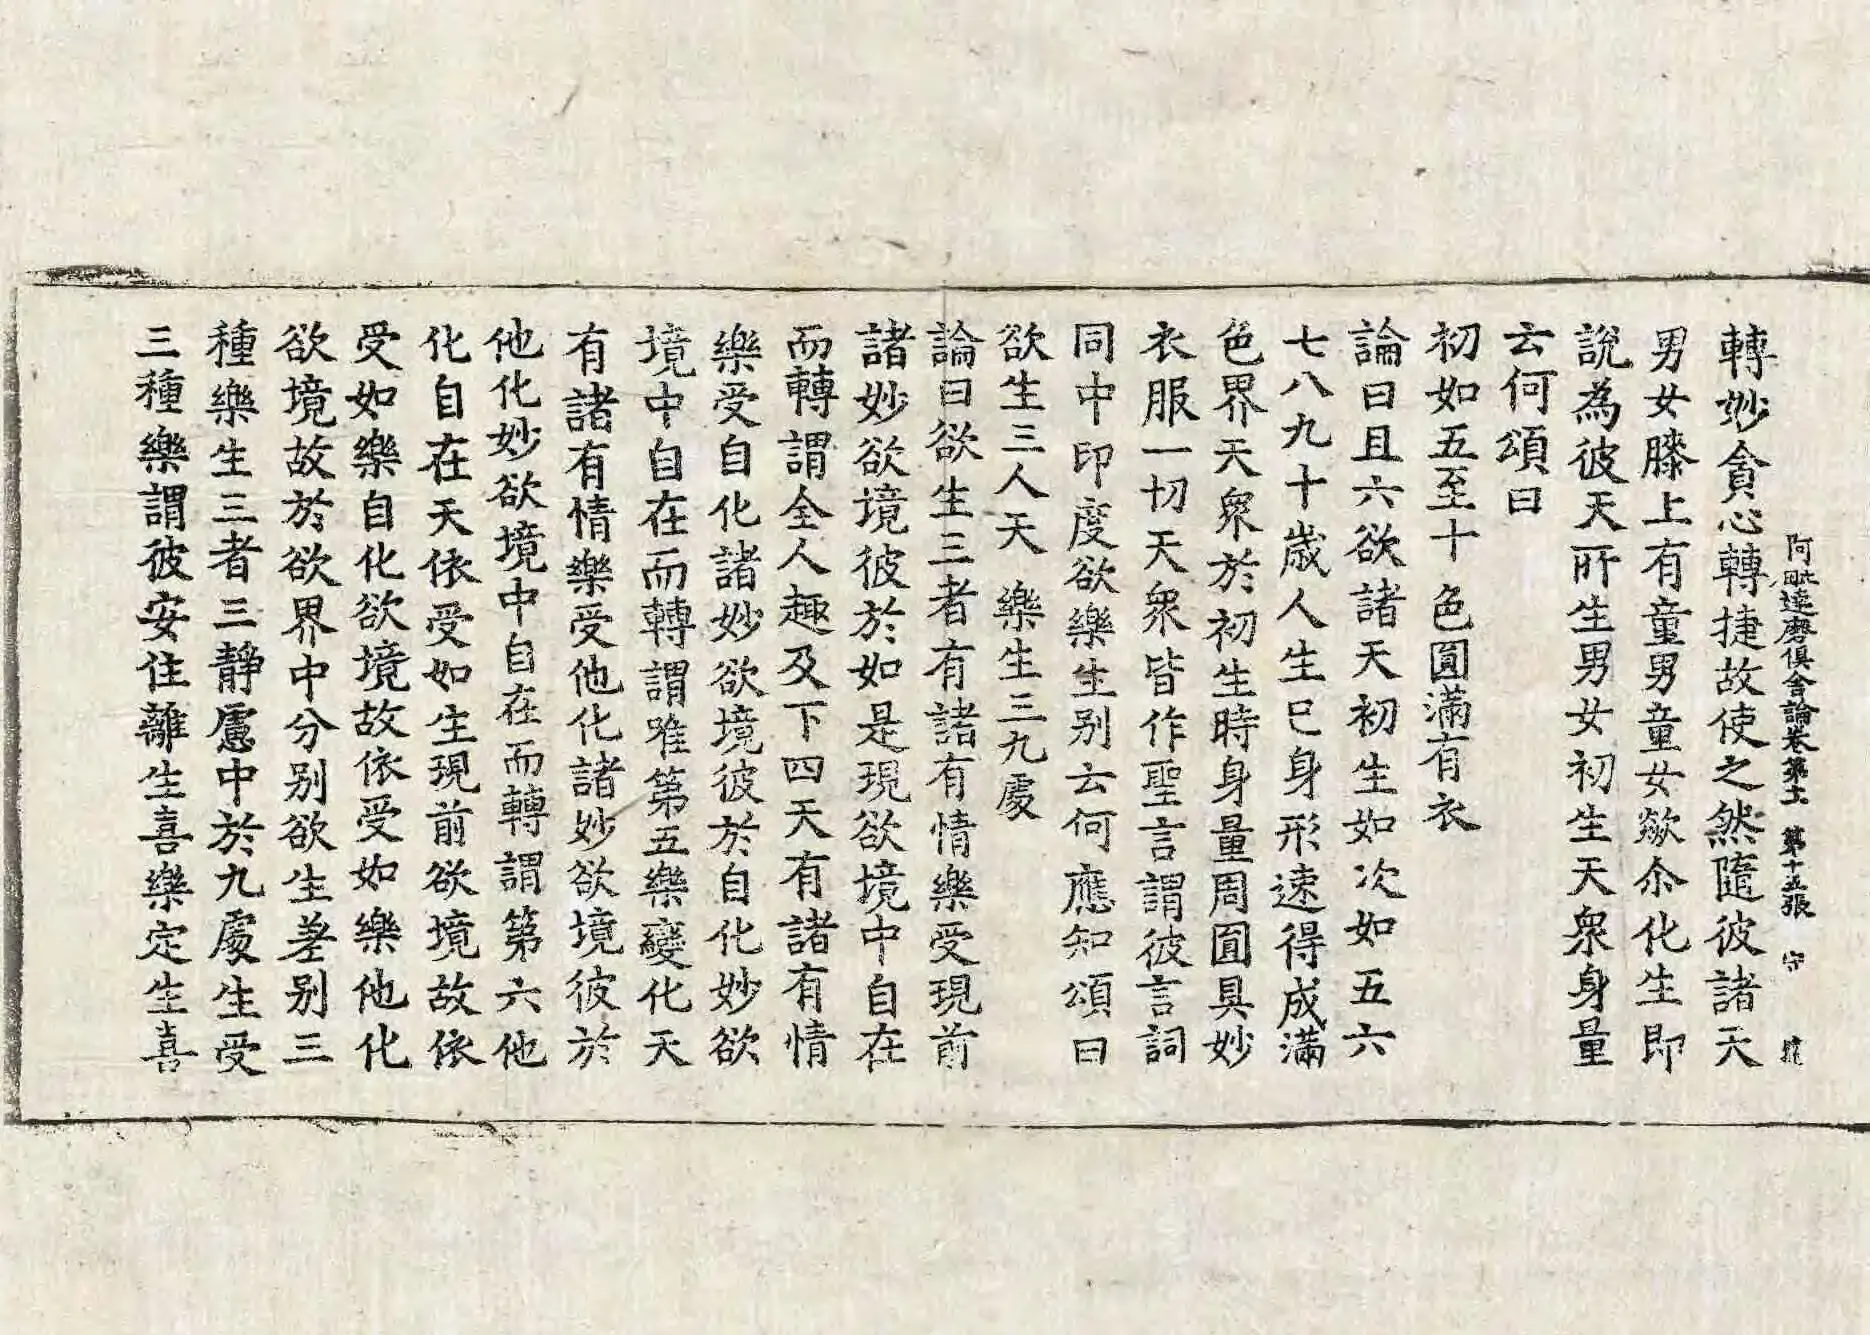 阿毗達磨俱舍論卷第十一 第十五張 守
轉妙貪心轉捷故使之然隨彼諸天
男女膝上有童男童女欻尒化生即
說為彼天所生男女初生天衆身量
云何頌曰
初如五至十 色圓滿有衣
論曰且六欲諸天初生如次如五六
七八九十歲人生已身形速得成滿
色界天衆於初生時身量周圓具妙
衣服一切天衆皆作聖言謂彼言詞
同中印度欲樂生别云何應知頌曰
欲生三人天 樂生三九處
論曰欲生三者有諸有情樂受現前
諸妙欲境彼於如是現欲境中自在
而轉謂全人趣及下四天有諸有情
樂受自化諸妙欲境彼於自化妙欲
境中自在而轉謂唯第五樂變化天
有諸有情樂受他化諸妙欲境彼於
他化妙欲境中自在而轉謂第六他
化自在天依受如生現前欲境故依
受如樂自化欲境故依受如樂他化
欲境故於欲界中分别欲生差别三
種樂生三者三靜慮中於九處生受
三種樂謂彼安住離生喜樂定生喜